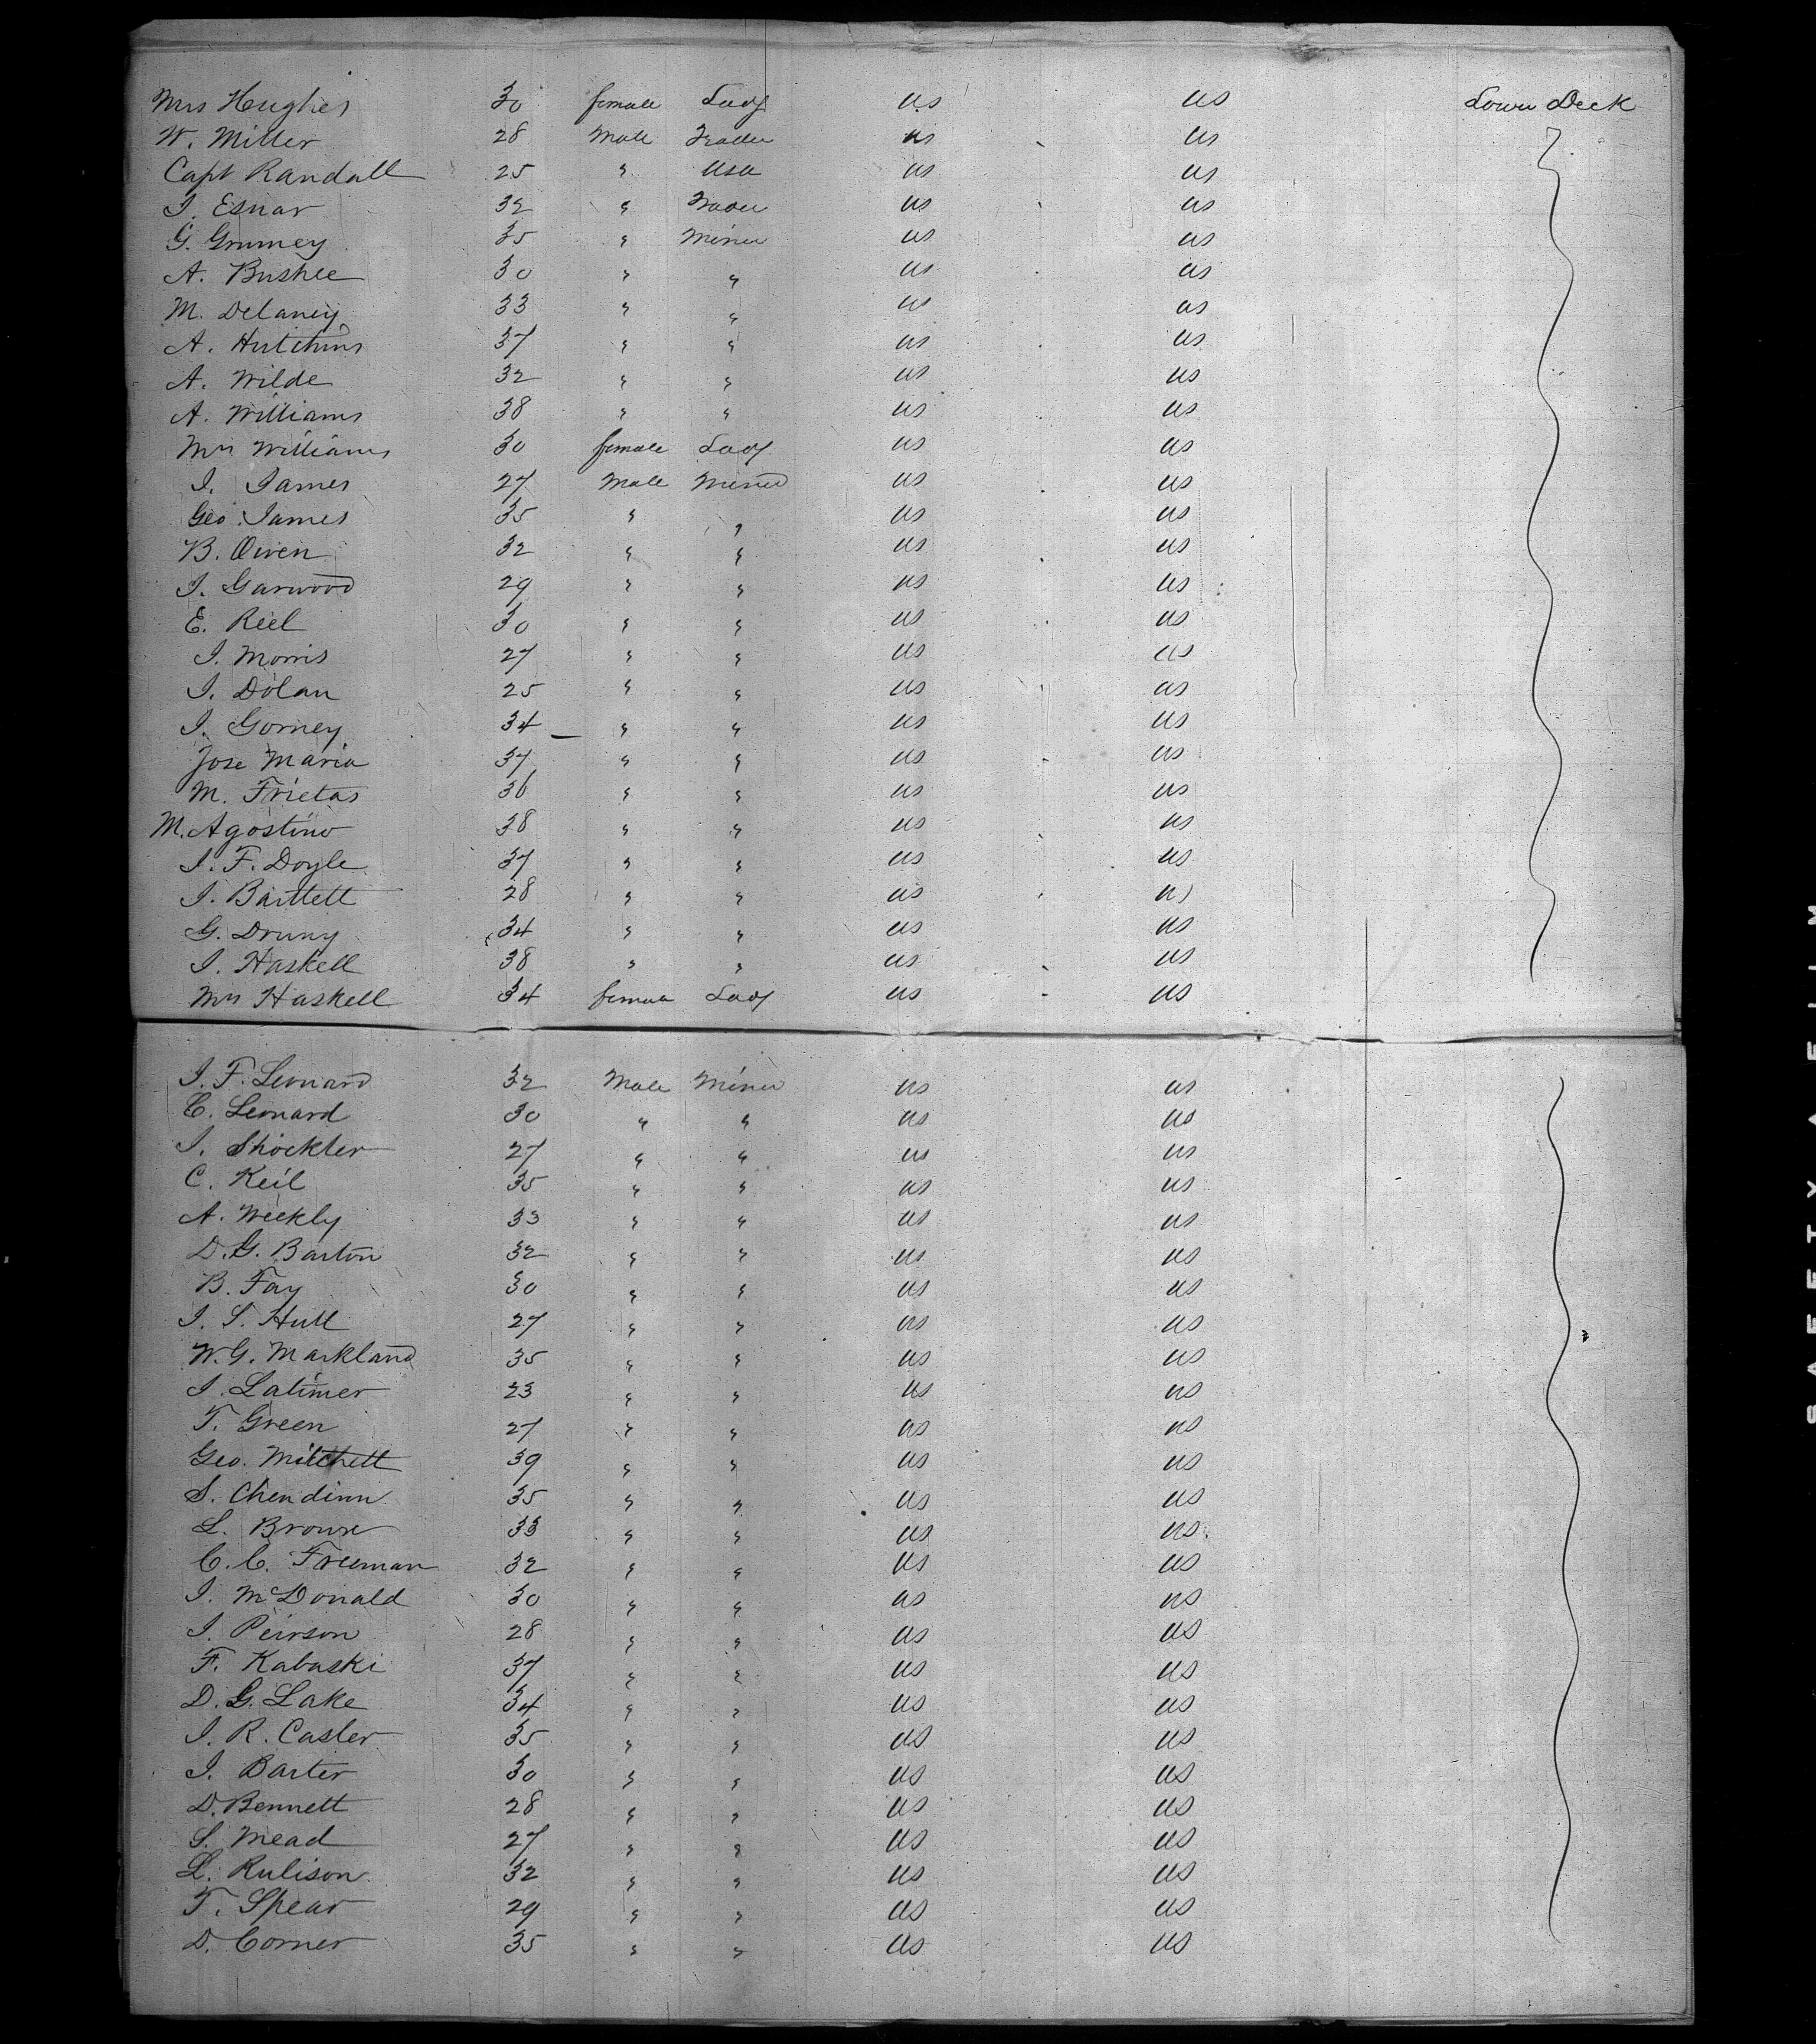 Mrs Hughes 30 female Lady US US Lower Deck
W. Miller 28 Male Trader US US
Capt Randall 25 " USA US US
I. Esnar 32 " Trader US US
G. Grumey 35 " Miner US US
A. Bushee 30 " " US US
M. Delaney 33 " " US US
A. Hutchins 37 " " US US
A. Wilde 32 " " US US
A. Williams 38 " " US US
Mrs Williams 30 female Lady US US
I. James 27 Male Miner US US
Geo. James 35 " " US US
B. Owen 32 " " US US
I. Garwood 29 " " US US
E. Reel 30 " " US US
I. Morris 27 " " US US
I. Dolan 25 " " US US
I. Gorney 34 " " US US
Jose Maria 37 " " US US
M. Frietas 36 " " US US
M. Agostino 38 " " US US
I. F. Doyle 37 " " US US
I. Bartlett 28 " " US US
G. Druny 34 " " US US
I. Haskell 38 " " US US
Mrs Haskell 34 female Lady US US
I. F. Leonard 32 Male Miner US US
C. Leonard 30 " " US US
I. Shockler 27 " " US US
C. Keil 35 " " US US
A. Weekly 33 " " US US
D. G. Barton 32 " " US US
B. Fay 30 " " US US
I. S. Hull 27 " " US US
W. G. Markland 35 " " US US
I. Latimer 23 " " US US
T. Green 27 " " US US
Geo. Mitchell 39 " " US US
S. Chendinn 35 " " US US
L. Browse 33 " " US US
C. C. Freeman 32 " " US US
I. McDonald 30 " " US US
I. Peirson 28 " " US US
F. Kabaski 37 " " US US
D. G. Lake 34 " " US US
I. R. Casler 35 " " US US
I. Barter 30 " " US US
D. Bennett 28 " " US US
S. Mead 27 " " US US
L. Rulison 32 " " US US
T. Spear 29 " " US US
D. Corner 35 " " US US